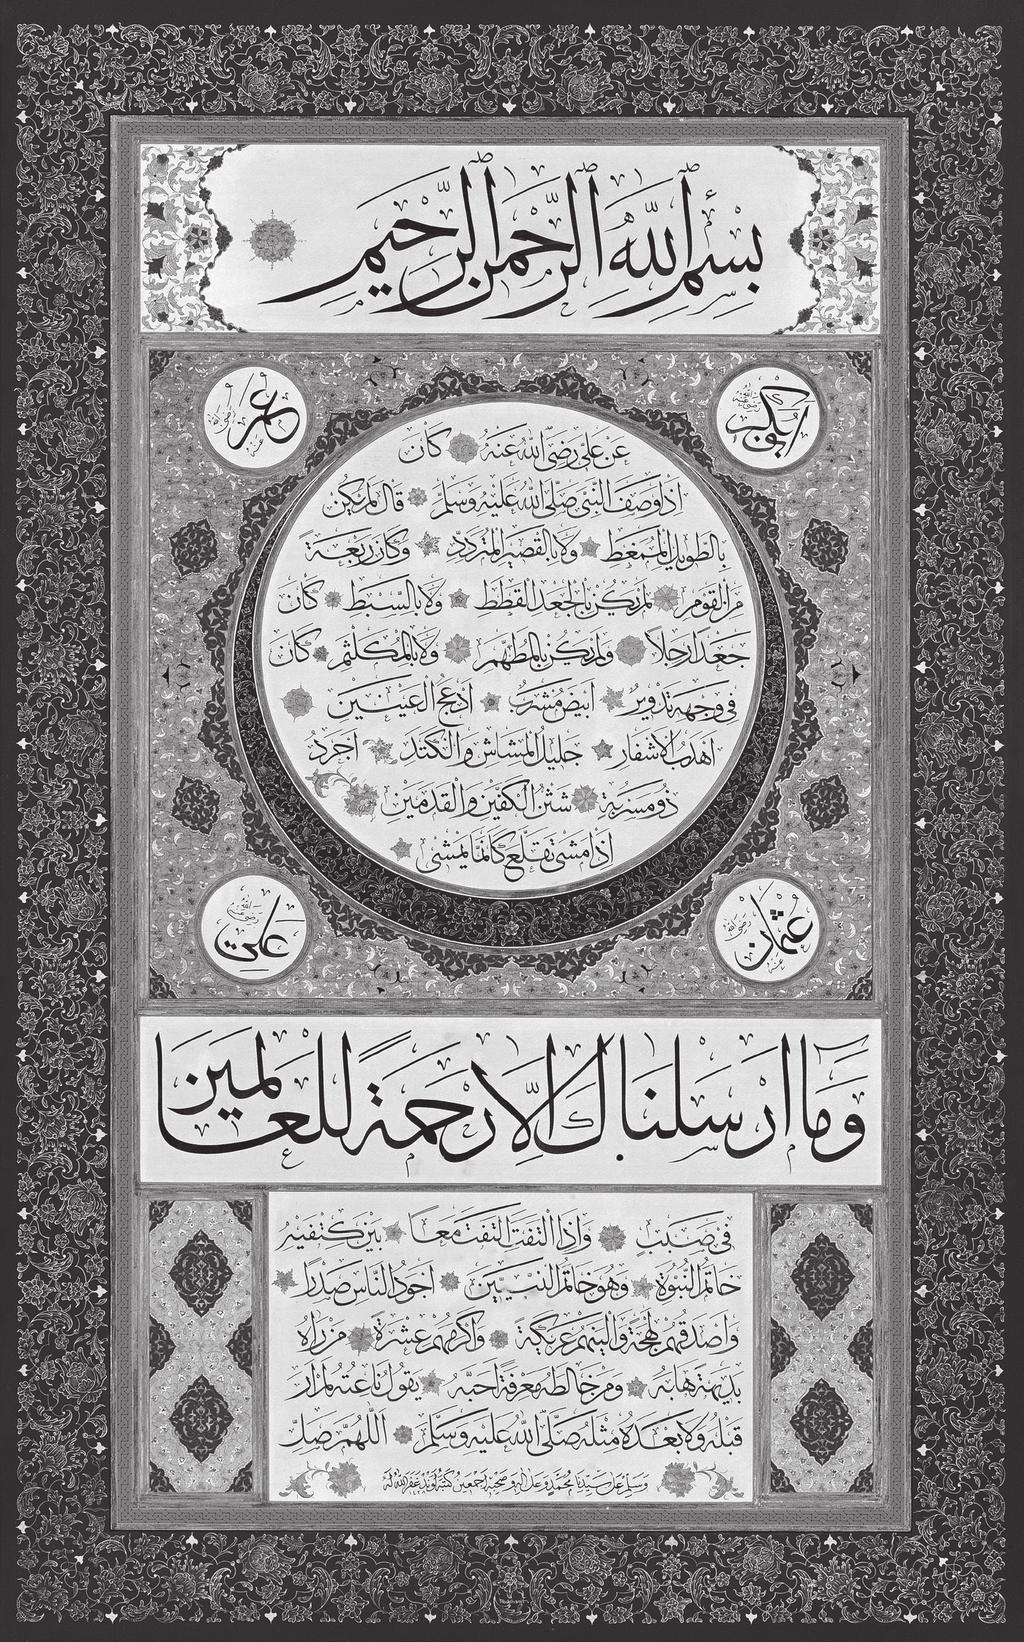 بسم الله الرحمن الرحيم
ابوبكر رضى الله عنه
عمر رضى الله عنه
عن على رضى الله عنه كان
اذا وصف النبى صلى الله عليه وسلم قال لم يكن
بالطويل الممغط ولا بالقصير المتردد وكان ربعة
من القوم لم يكن بالجعد القطط ولا بالسبط كان
جعدا رجلا ولم يكن بالمطهم ولا بالمكلثم وكان
فى وجهه تدوير ابيض مشرب ادعج العينين
اهدب الاشفار جليل المشاش والكتد اجرد
ذو مسربة شثن الكفين والقدمين
اذا مشى تقلع كانما يمشى
عثمان رضى الله عنه
على رضى الله عنه
وما ارسلناك الا رحمة للعالمين
فى صبب واذا التفت التفت معا بين كتفيه
خاتم النبوة وهو خاتم النبيين اجود الناس صدرا
واصدقهم لهجة والينهم عريكة واكرمهم عشرة من راه
بديهة هابه ومن خالطه معرفة احبه يقول ناعته لم ار
قبله ولا بعده مثله صلى الله عليه وسلم اللهم صل
وسلم على سيدنا محمد وعلى اله وصحبه اجمعين كتبه غفر الله له